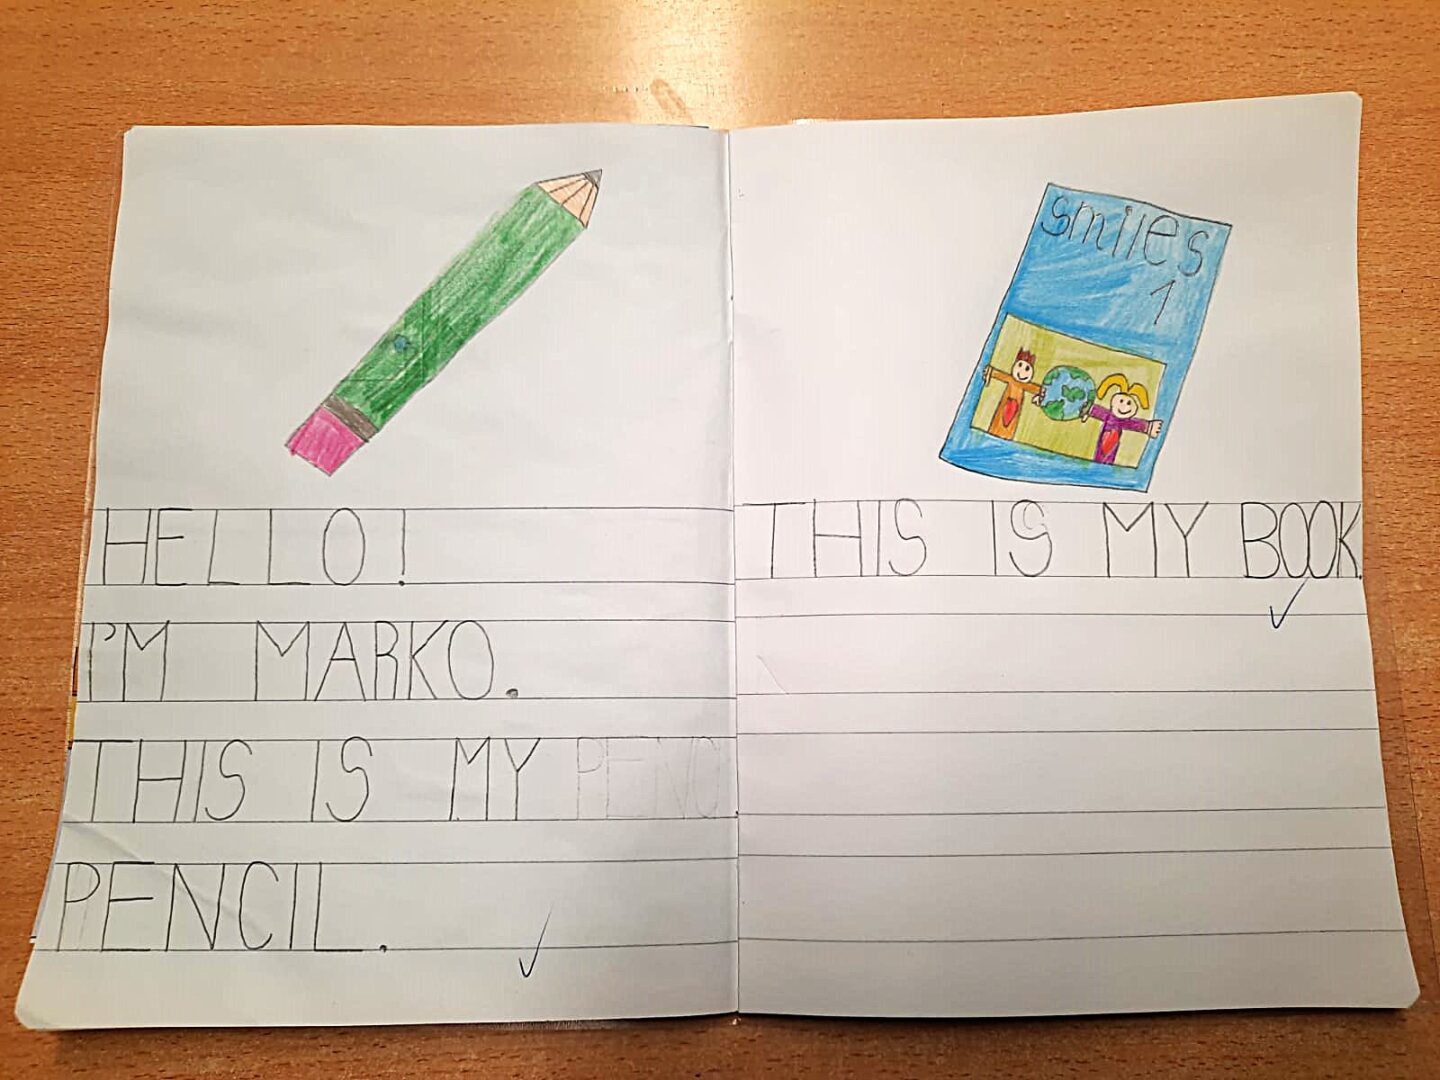 HELLO!
I'M MARKO.
THIS IS MY PENC
PENCIL.
smiles
1
THIS IS MY BOOK.